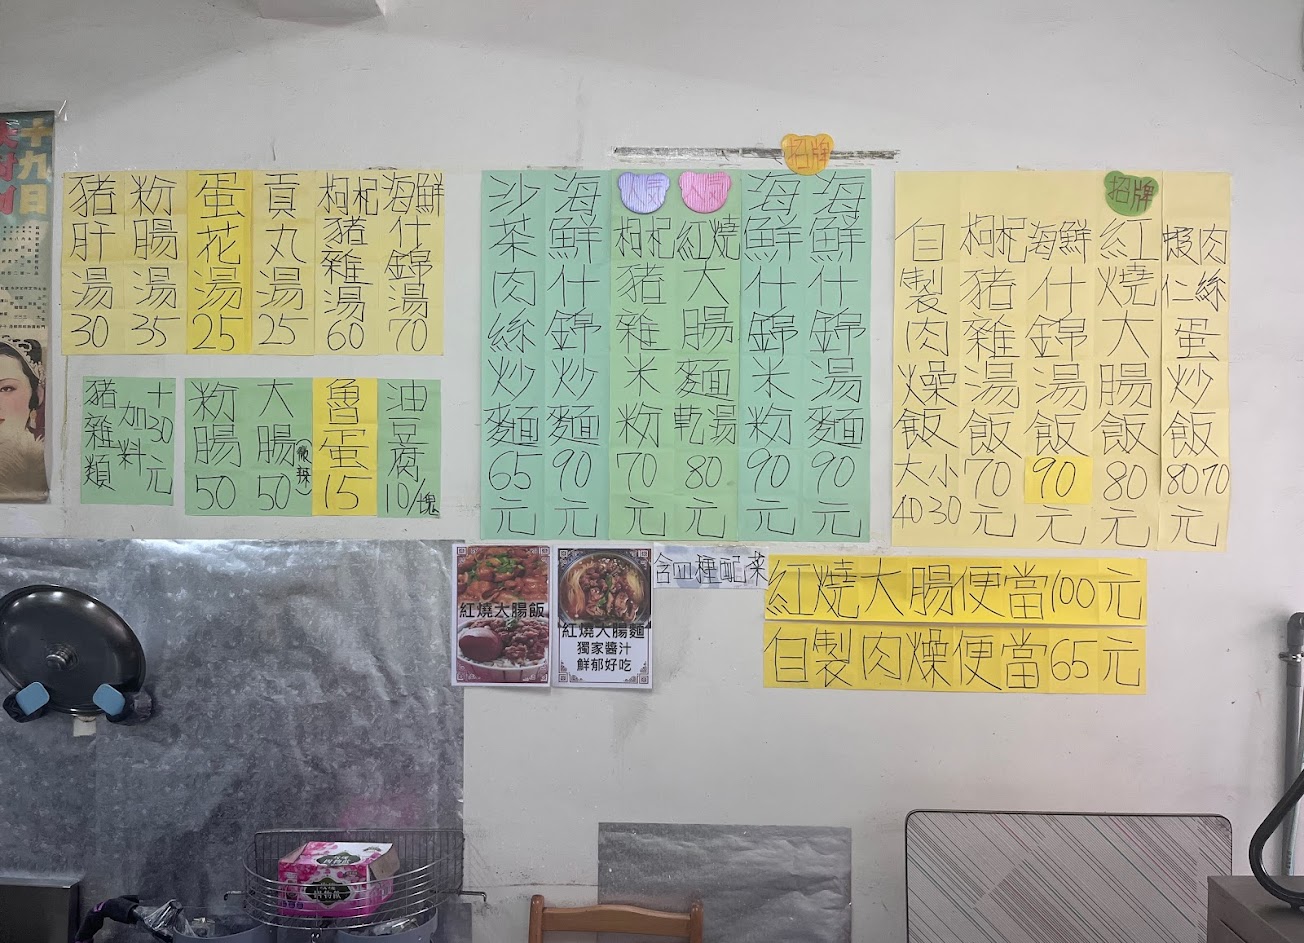 十九日
豬肝湯30
粉腸湯35
蛋花湯25
貢丸湯25
枸杞豬雜湯60
海鮮什錦湯70
豬雜類加料十30元
粉腸50
大腸50(微辣)
魯蛋15
油豆腐10/塊
招牌
沙茶肉絲炒麵65元
海鮮什錦炒麵90元
人氣
枸杞豬雜米粉70元
人氣
紅燒大腸麵乾湯80元
海鮮什錦米粉90元
海鮮什錦湯麵90元
自製肉燥飯大小4030
枸杞豬雜湯飯70元
海鮮什錦湯飯90元
招牌
紅燒大腸飯80元
蝦仁肉絲蛋炒飯8070元
紅燒大腸飯
紅燒大腸麵
獨家醬汁
鮮郁好吃
含四種配菜
紅燒大腸便當100元
自製肉燥便當65元